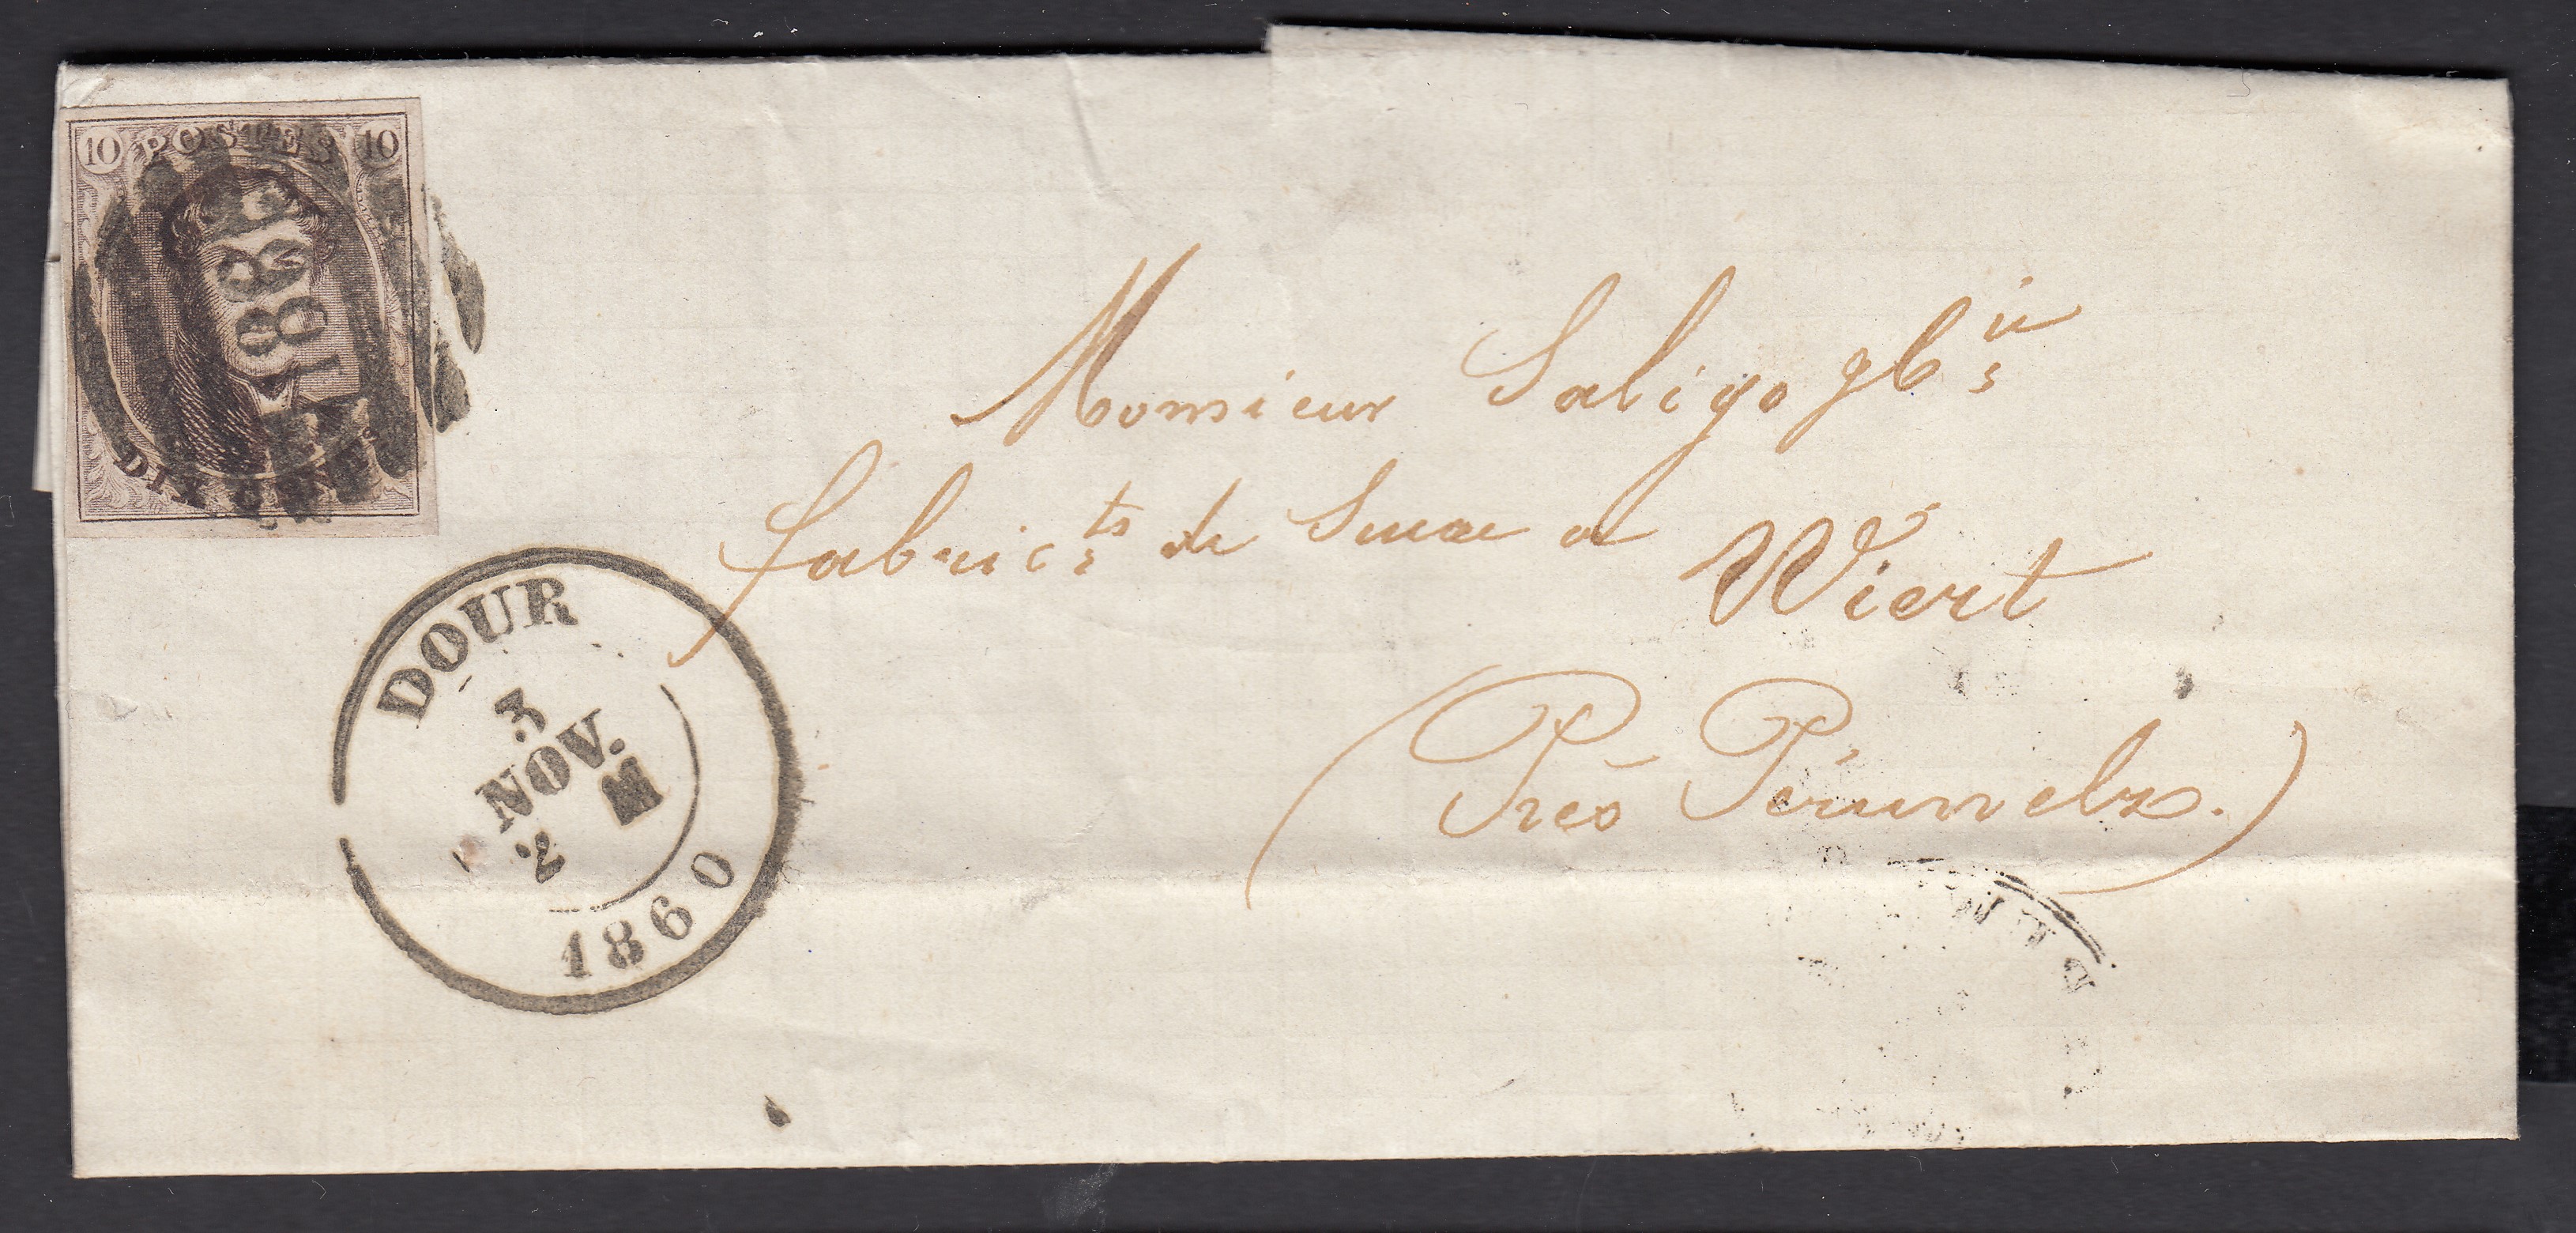 10 POSTES 10
188
DIX CENTS
DOUR
3
NOV.
2 M
1860
Monsieur Saligo
fabricts de Sucre a Wiert
(Près Péruwelz.)